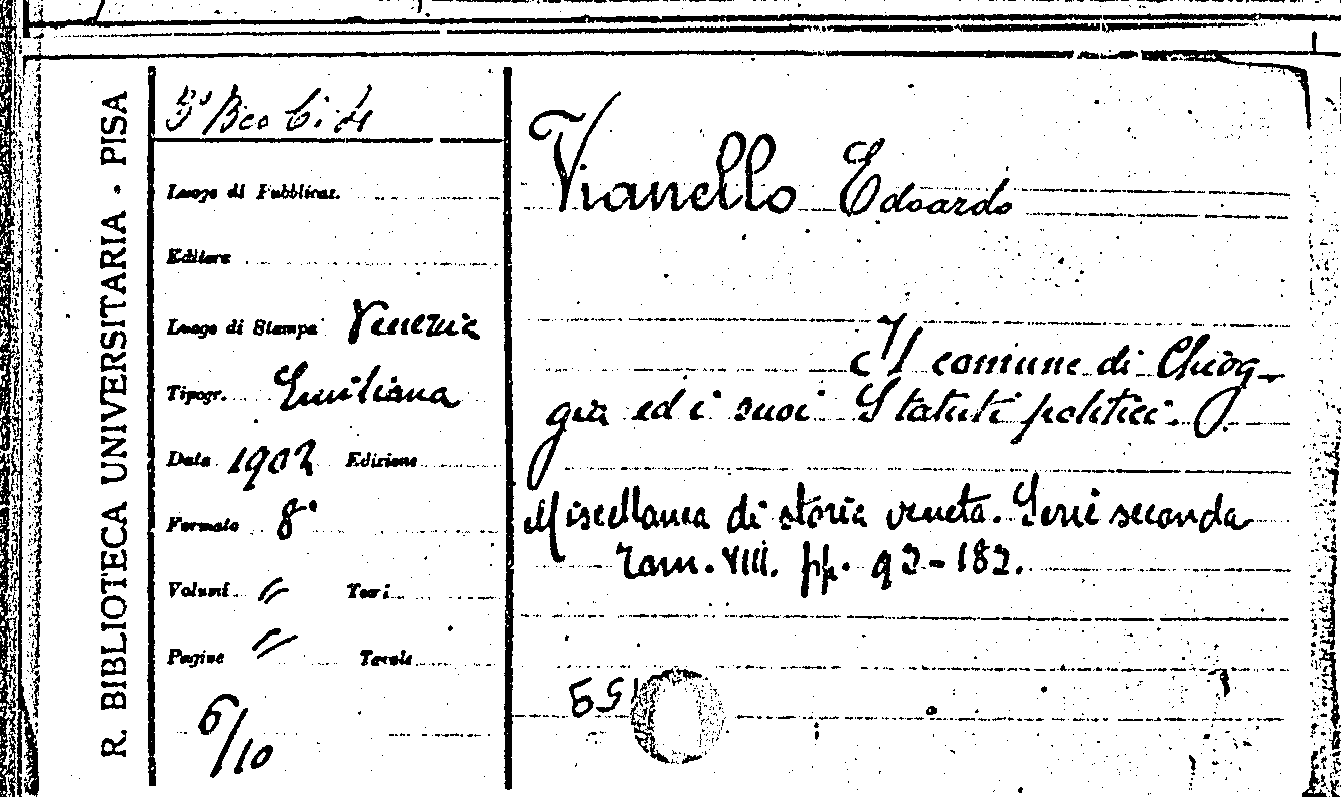 R. BIBLIOTECA UNIVERSITARIA - PISA
Luogo di Pubblicaz.
Editore
Luogo di Stampa Venezia
Tipogr. Emiliana
Data 1902 Edizione
Formato 8°
Volumi " Tomi
Pagine " Tavole
6/10
Vianello Edoardo
Il comune di Chiog-
gia ed i suoi Statuti politici.
Miscellanea di storia veneta. Serie seconda
Tom. VIII. pp. 93-182.